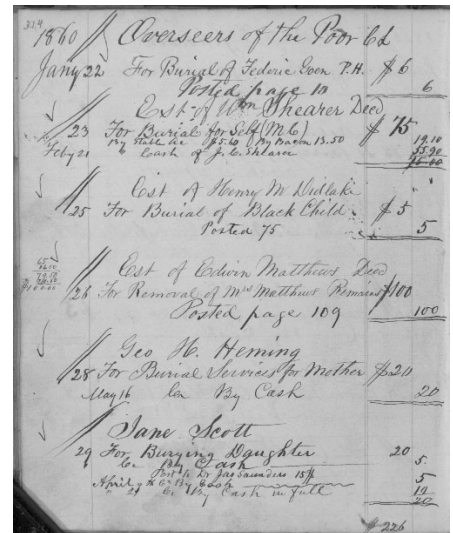 314
1860 Overseers of the Poor Cd
Jany 22 For Burial of Federic Goen P.H. $6
Posted page 10 6
Est of Wm Shearer Decd
23 For Burial for Self (M C) $ 75
By Hable Ac $5.60 By Bacon 13.50 19.10
Feby 21 " Cash of J. C. Shearer 55.90
75.00
Est of Henry M Didlake
25 For Burial of Black Child $5
Posted 75 5
Est of Edwin Matthews Decd
26 For Removal of Mrs Matthews Remains $100
Posted page 109 100
Geo H. Heming
28 For Burial Services for Mother $20
May 16 Cr By Cash 20
Jane Scott
29 For Burying Daughter 20
" Cr By Cash 5
5
April 9 By Cash
" 21 Cr By Cash in full
20
$226